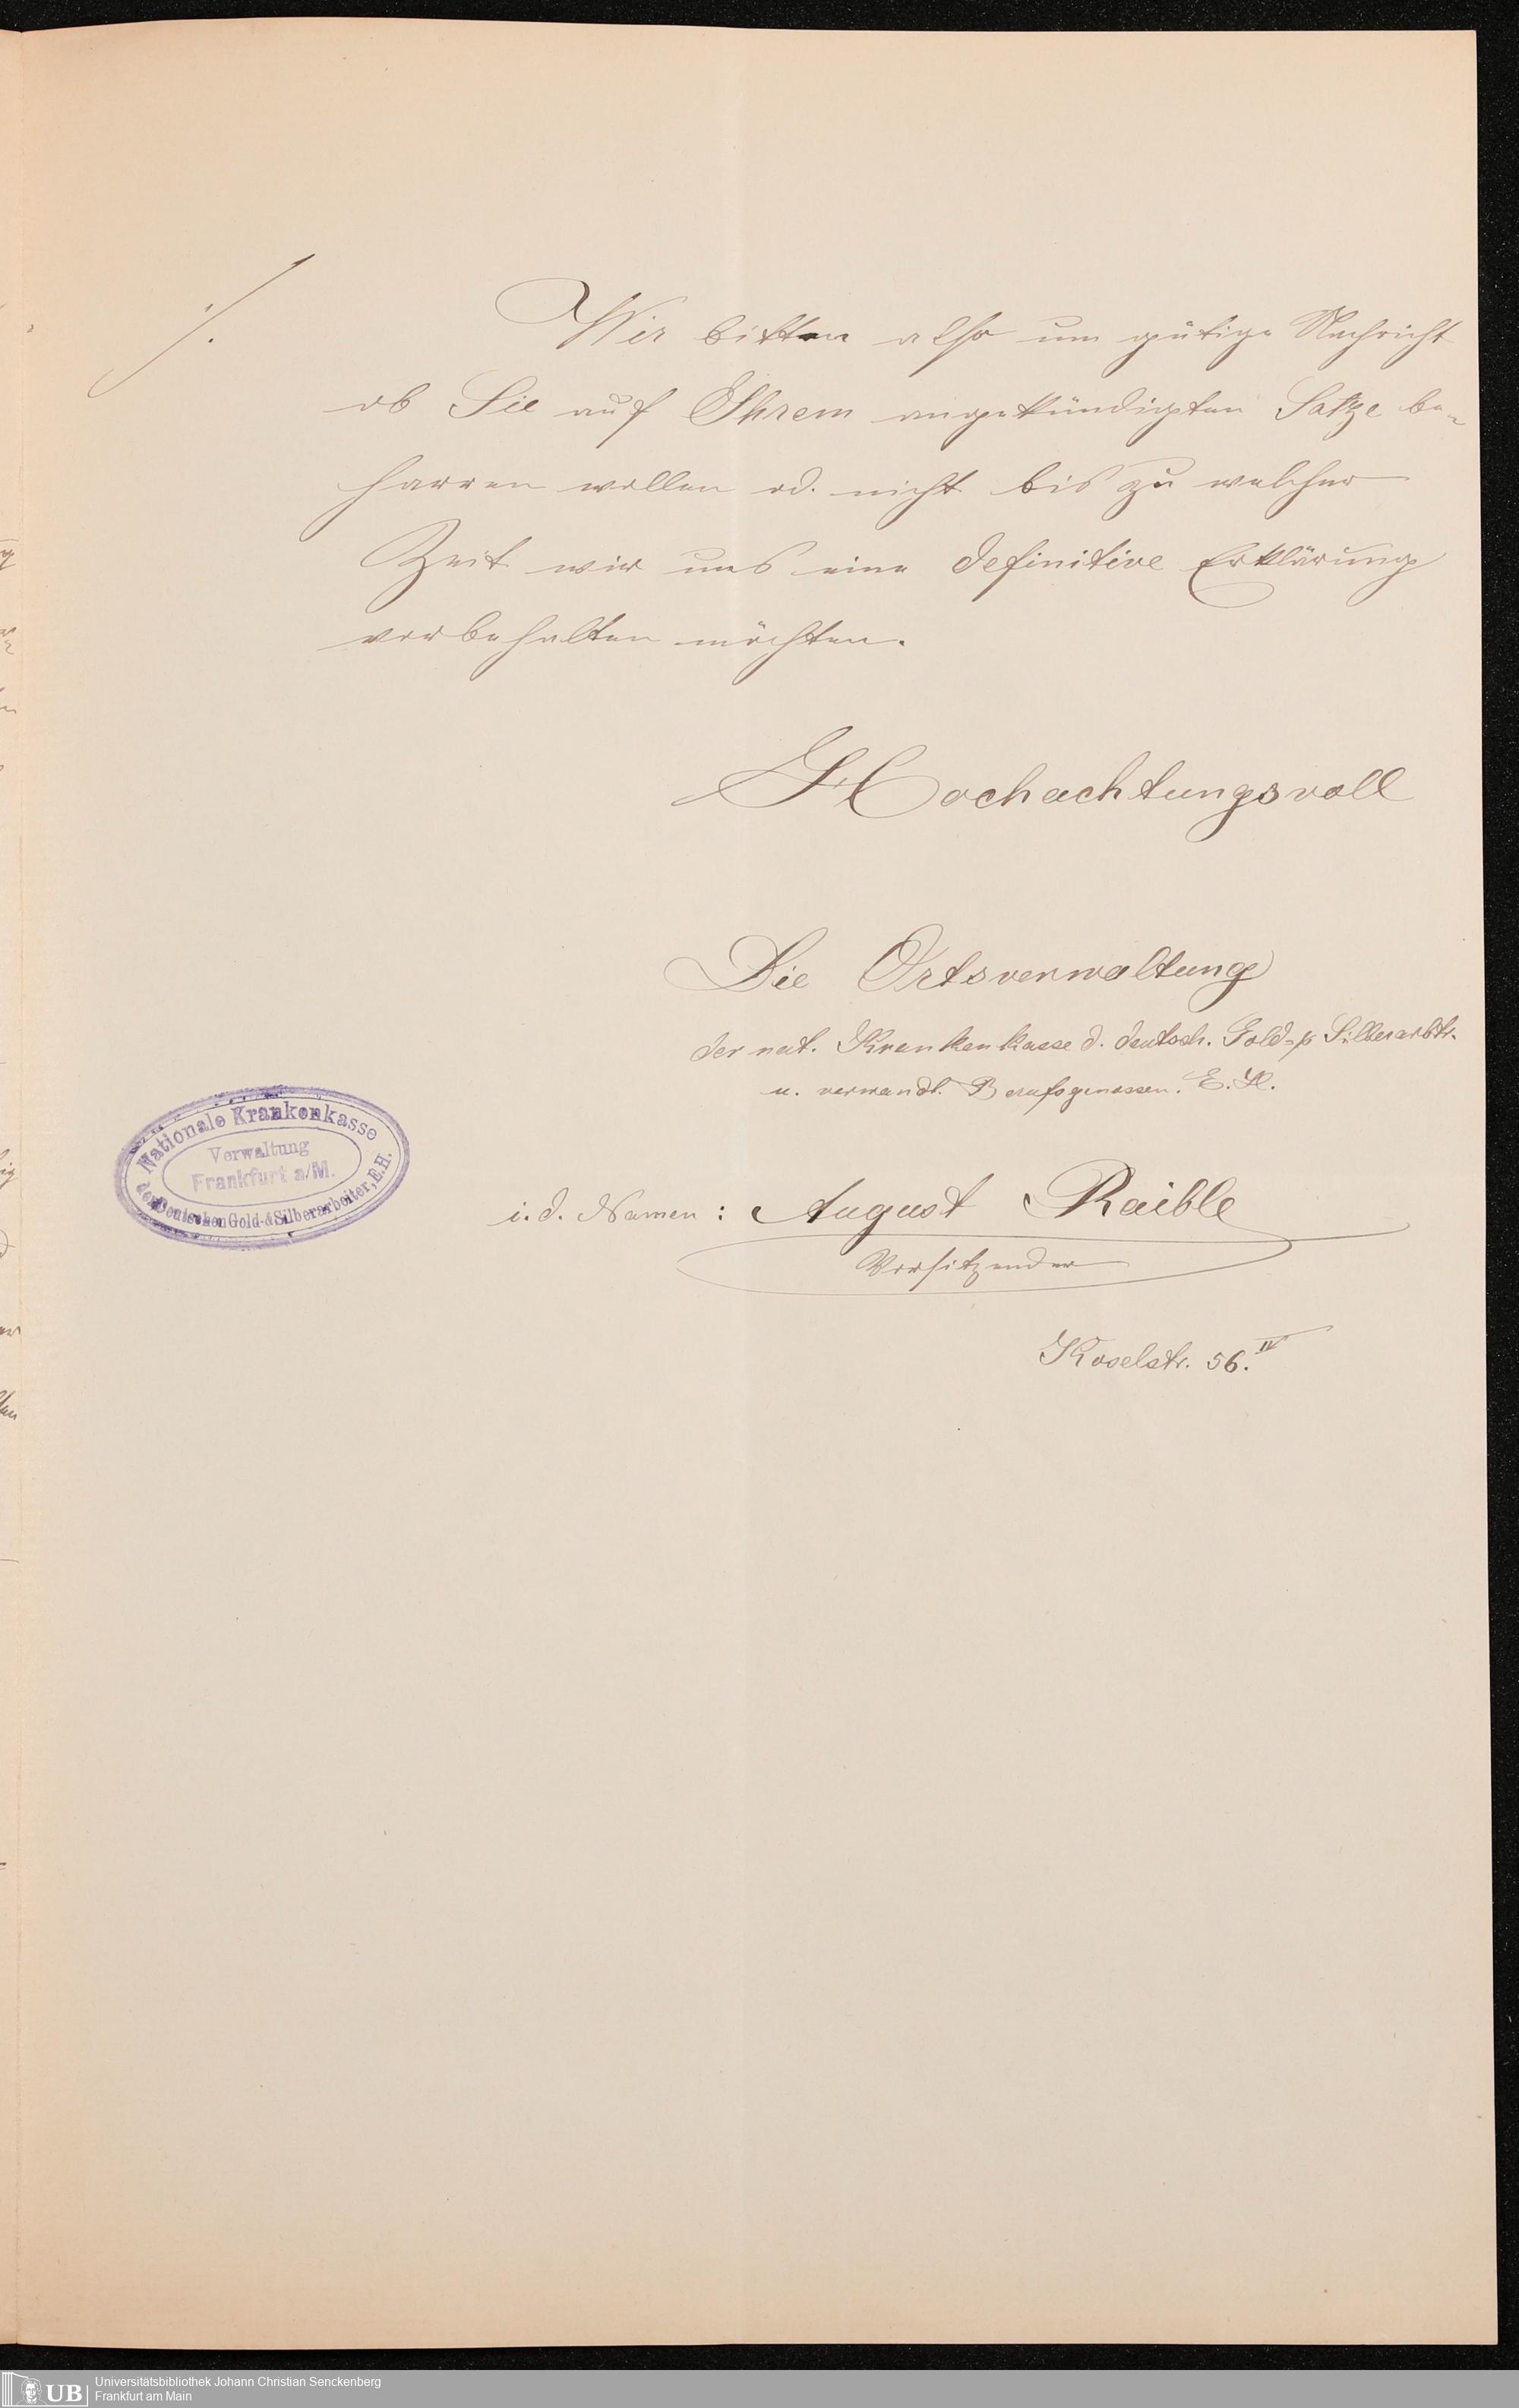 ./.
Wir bitten also um gütige Nachricht
ob Sie auf Ihrem angekündigten Satze be-
harren wollen od. nicht bis zu welcher
Zeit wir uns eine definitive Erklärung
vorbehalten möchten.
Hochachtungsvoll
Die Ortsverwaltung
der nat. Krankenkasse d. deutsch. Gold- & Silberarbtr.
u. verwandt. Berufsgenossen. E. H.
Nationale Krankenkasse
Verwaltung
Frankfurt a/M.
der Deutschen Gold- & Silberarbeiter, E.H.
i. d. Namen: August Raible
Vorsitzender
Koselstr. 56. IV
UB
Universitätsbibliothek Johann Christian Senckenberg
Frankfurt am Main